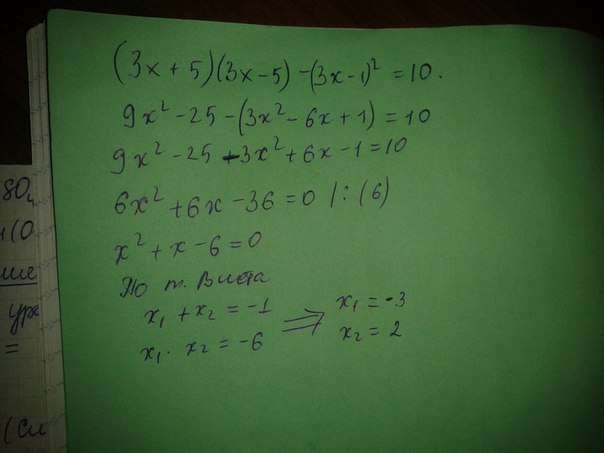 (3x + 5)(3x - 5) - (3x - 1)² = 10.
9x² - 25 - (3x² - 6x + 1) = 10
9x² - 25 - 3x² + 6x - 1 = 10
6x² + 6x - 36 = 0 /: (6)
x² + x - 6 = 0
По т. Виета
x₁ + x₂ = -1 ⇒ x₁ = -3
x₁ · x₂ = -6 x₂ = 2
SO₄
(O
ше
ура
=
(Сл